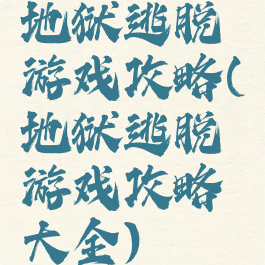 地狱逃脱
游戏攻略(
地狱逃脱
游戏攻略
大全)